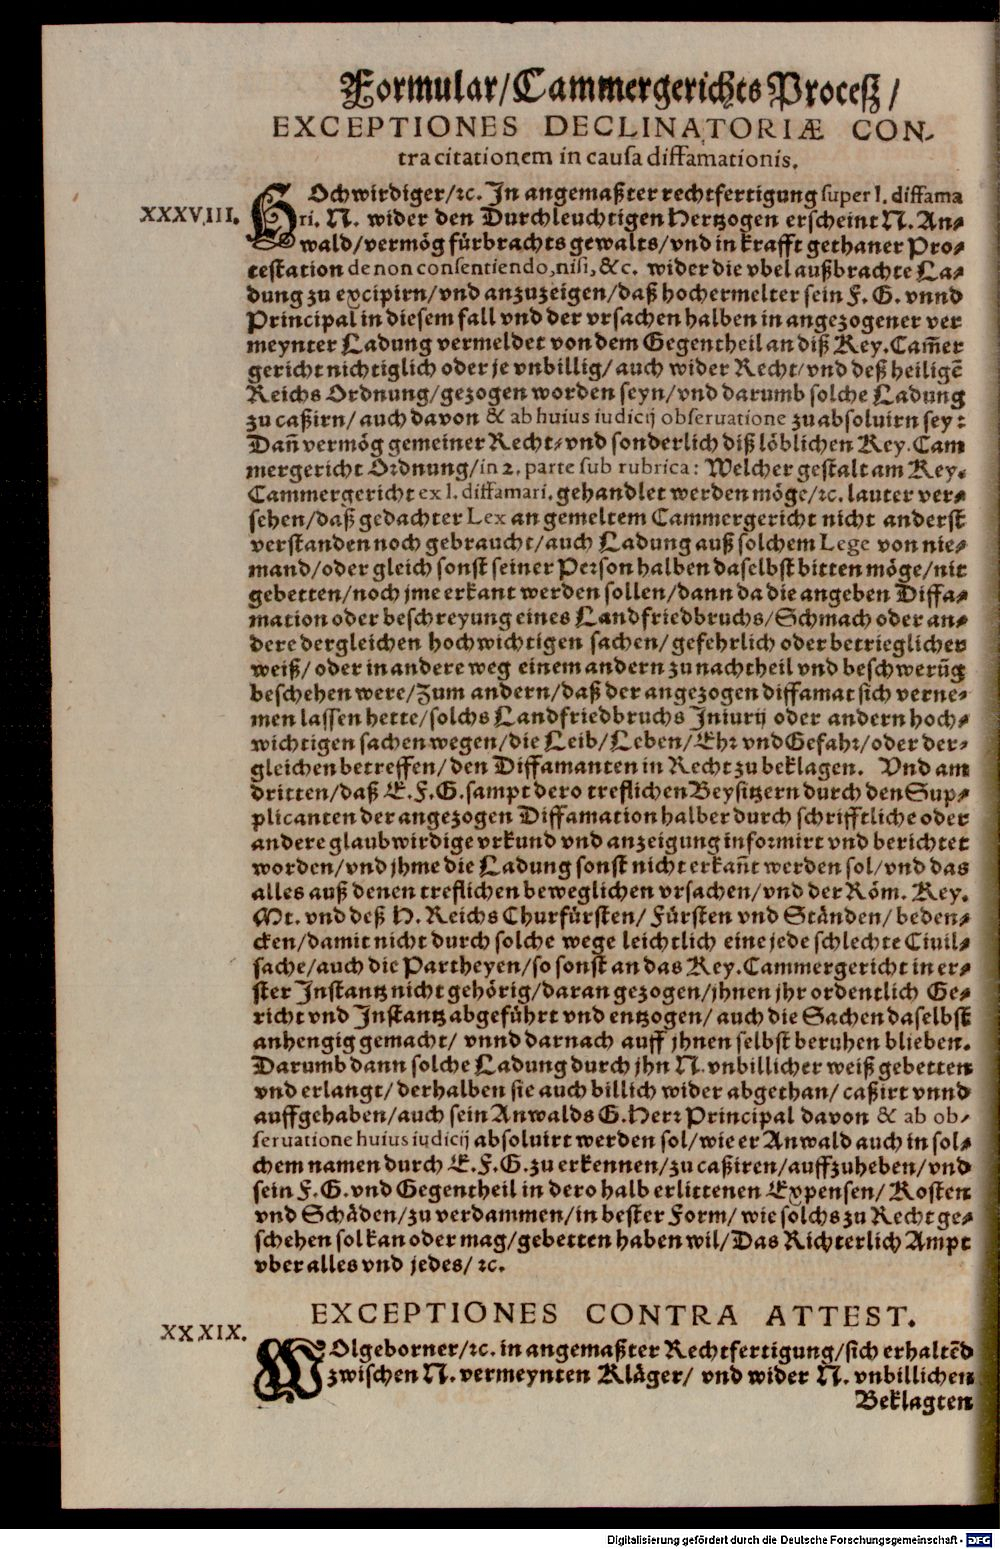 Formular/Cammergerichts Proceß/
EXCEPTIONES DECLINATORIÆ CON-
tra citationem in causa diffamationis.
XXXVIII.
HOchwirdiger/ꝛc. In angemaßter rechtfertigung super l. diffama
ri. N. wider den Durchleuchtigen Hertzogen erscheint N. An-
wald/vermög fürbrachts gewalts/vnd in krafft gethaner Pro-
testation de non consentiendo, nisi, &c. wider die vbel außbrachte La-
dung zu excipirn/vnd anzuzeigen/daß hochermelter sein F. G. vnnd
Principal in diesem fall vnd der vrsachen halben in angezogener ver
meynter Ladung vermeldet von dem Gegentheil an diß Key. Cam̃er
gericht nichtiglich oder je vnbillig/ auch wider Recht/vnd deß heiligẽ
Reichs Ordnung/gezogen worden seyn/vnd darumb solche Ladung
zu caßirn/auch davon & ab huius iudicij obseruatione zu absoluirn sey:
Dañ vermög gemeiner Recht/vnd sonderlich diß löblichen Key. Cam
mergericht Ordnung/in 2. parte sub rubrica: Welcher gestalt am Key.
Cammergericht ex l. diffamari. gehandlet werden möge/ꝛc. lauter ver-
sehen/daß gedachter Lex an gemeltem Cammergericht nicht anderst
verstanden noch gebraucht/auch Ladung auß solchem Lege von nie-
mand/oder gleich sonst seiner Person halben daselbst bitten möge/nit
gebetten/noch jme erkant werden sollen/dann da die angeben Diffa-
mation oder beschreyung eines Landfriedbruchs/Schmach oder an-
dere dergleichen hochwichtigen sachen/gefehrlich oder betrieglicher
weiß/ oder in andere weg einem andern zu nachtheil vnd beschwerũg
beschehen were/Zum andern/daß der angezogen diffamat sich verne-
men lassen hette/solchs Landfriedbruchs Iniurij oder andern hoch-
wichtigen sachen wegen/die Leib/Leben/Ehr vnd Gefahr/oder der-
gleichen betreffen/den Diffamanten in Recht zu beklagen. Vnd am
dritten/daß E. F. G. sampt dero treflichen Beysitzern durch den Sup-
plicanten der angezogen Diffamation halber durch schrifftliche oder
andere glaubwirdige vrkund vnd anzeigung informirt vnd berichtet
worden/vnd jhme die Ladung sonst nicht erkañt werden sol/vnd das
alles auß denen treflichen beweglichen vrsachen/vnd der Röm. Key.
Mt. vnd deß H. Reichs Churfürsten/ Fürsten vnd Ständen/ beden-
cken/damit nicht durch solche wege leichtlich eine jede schlechte Civil-
sache/auch die Partheyen/so sonst an das Key. Cammergericht in er-
ster Instantz nicht gehörig/daran gezogen/jhnen jhr ordentlich Ge-
richt vnd Instantz abgeführt vnd entzogen/ auch die Sachen daselbst
anhengig gemacht/ vnnd darnach auff jhnen selbst beruhen blieben.
Darumb dann solche Ladung durch jhn N. vnbillicher weiß gebetten
vnd erlangt/ derhalben sie auch billich wider abgethan/ caßirt vnnd
auffgehaben/auch sein Anwalds G. Herr Principal davon & ab ob-
seruatione huius iudicij absoluirt werden sol/wie er Anwald auch in sol-
chem namen durch E. F. G. zu erkennen/zu caßiren/auffzuheben/vnd
sein F. G. vnd Gegentheil in dero halb erlittenen Expensen/ Kosten
vnd Schäden/zu verdammen/in bester Form/ wie solchs zu Recht ge-
schehen sol kan oder mag/gebetten haben wil/Das Richterlich Ampt
vber alles vnd jedes/ ꝛc.
EXCEPTIONES CONTRA ATTEST.
XXXIX.
WOlgeborner/ꝛc. in angemaßter Rechtfertigung/sich erhaltẽd
zwischen N. vermeynten Kläger/ vnd wider N. vnbillichen
Beklagten
Digitalisierung gefördert durch die Deutsche Forschungsgemeinschaft - DFG